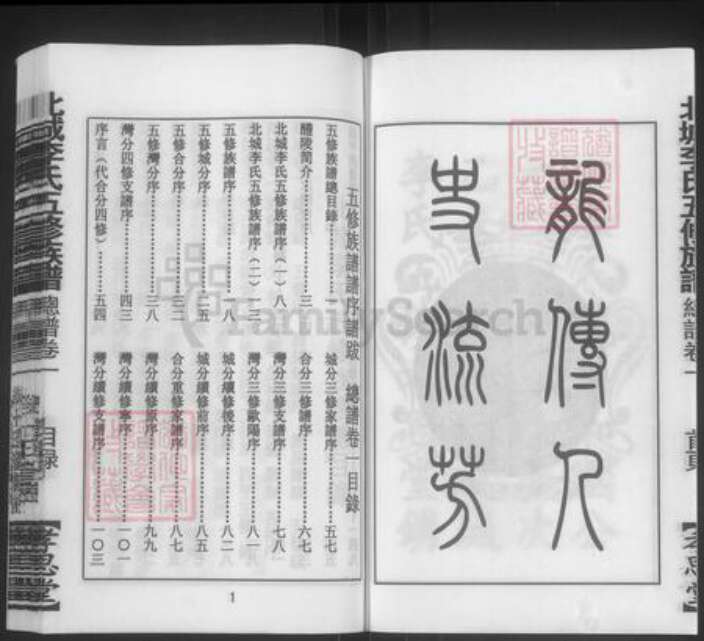 龍傳人
史流芳
北城李氏五修族譜
總譜卷一
首頁
孝思堂
五修族譜譜序譜跋　總譜卷一目錄
五修族譜總目錄…………一
醴陵簡介…………三
北城李氏五修族譜序（一）八
北城李氏五修族譜序（二）一三
五修族譜序…………一八
五修城分序…………二五
五修合分序…………三二
五修灣分序…………三八
灣分四修支譜序…………四三
序言（代合分四修）…………五四
城分三修家譜序…………五七
合分三修譜序…………六七
灣分三修支譜序…………七八
灣分三修歐陽序…………八一
城分續修後序…………八二
城分續修前序…………八五
合分重修家譜序…………八七
灣分續修 序…………九九
灣分續修 序…………一〇一
灣分續修支譜序…………一〇三
1
北城李氏五修族譜
總譜卷一
目錄
孝思堂
FamilySearch